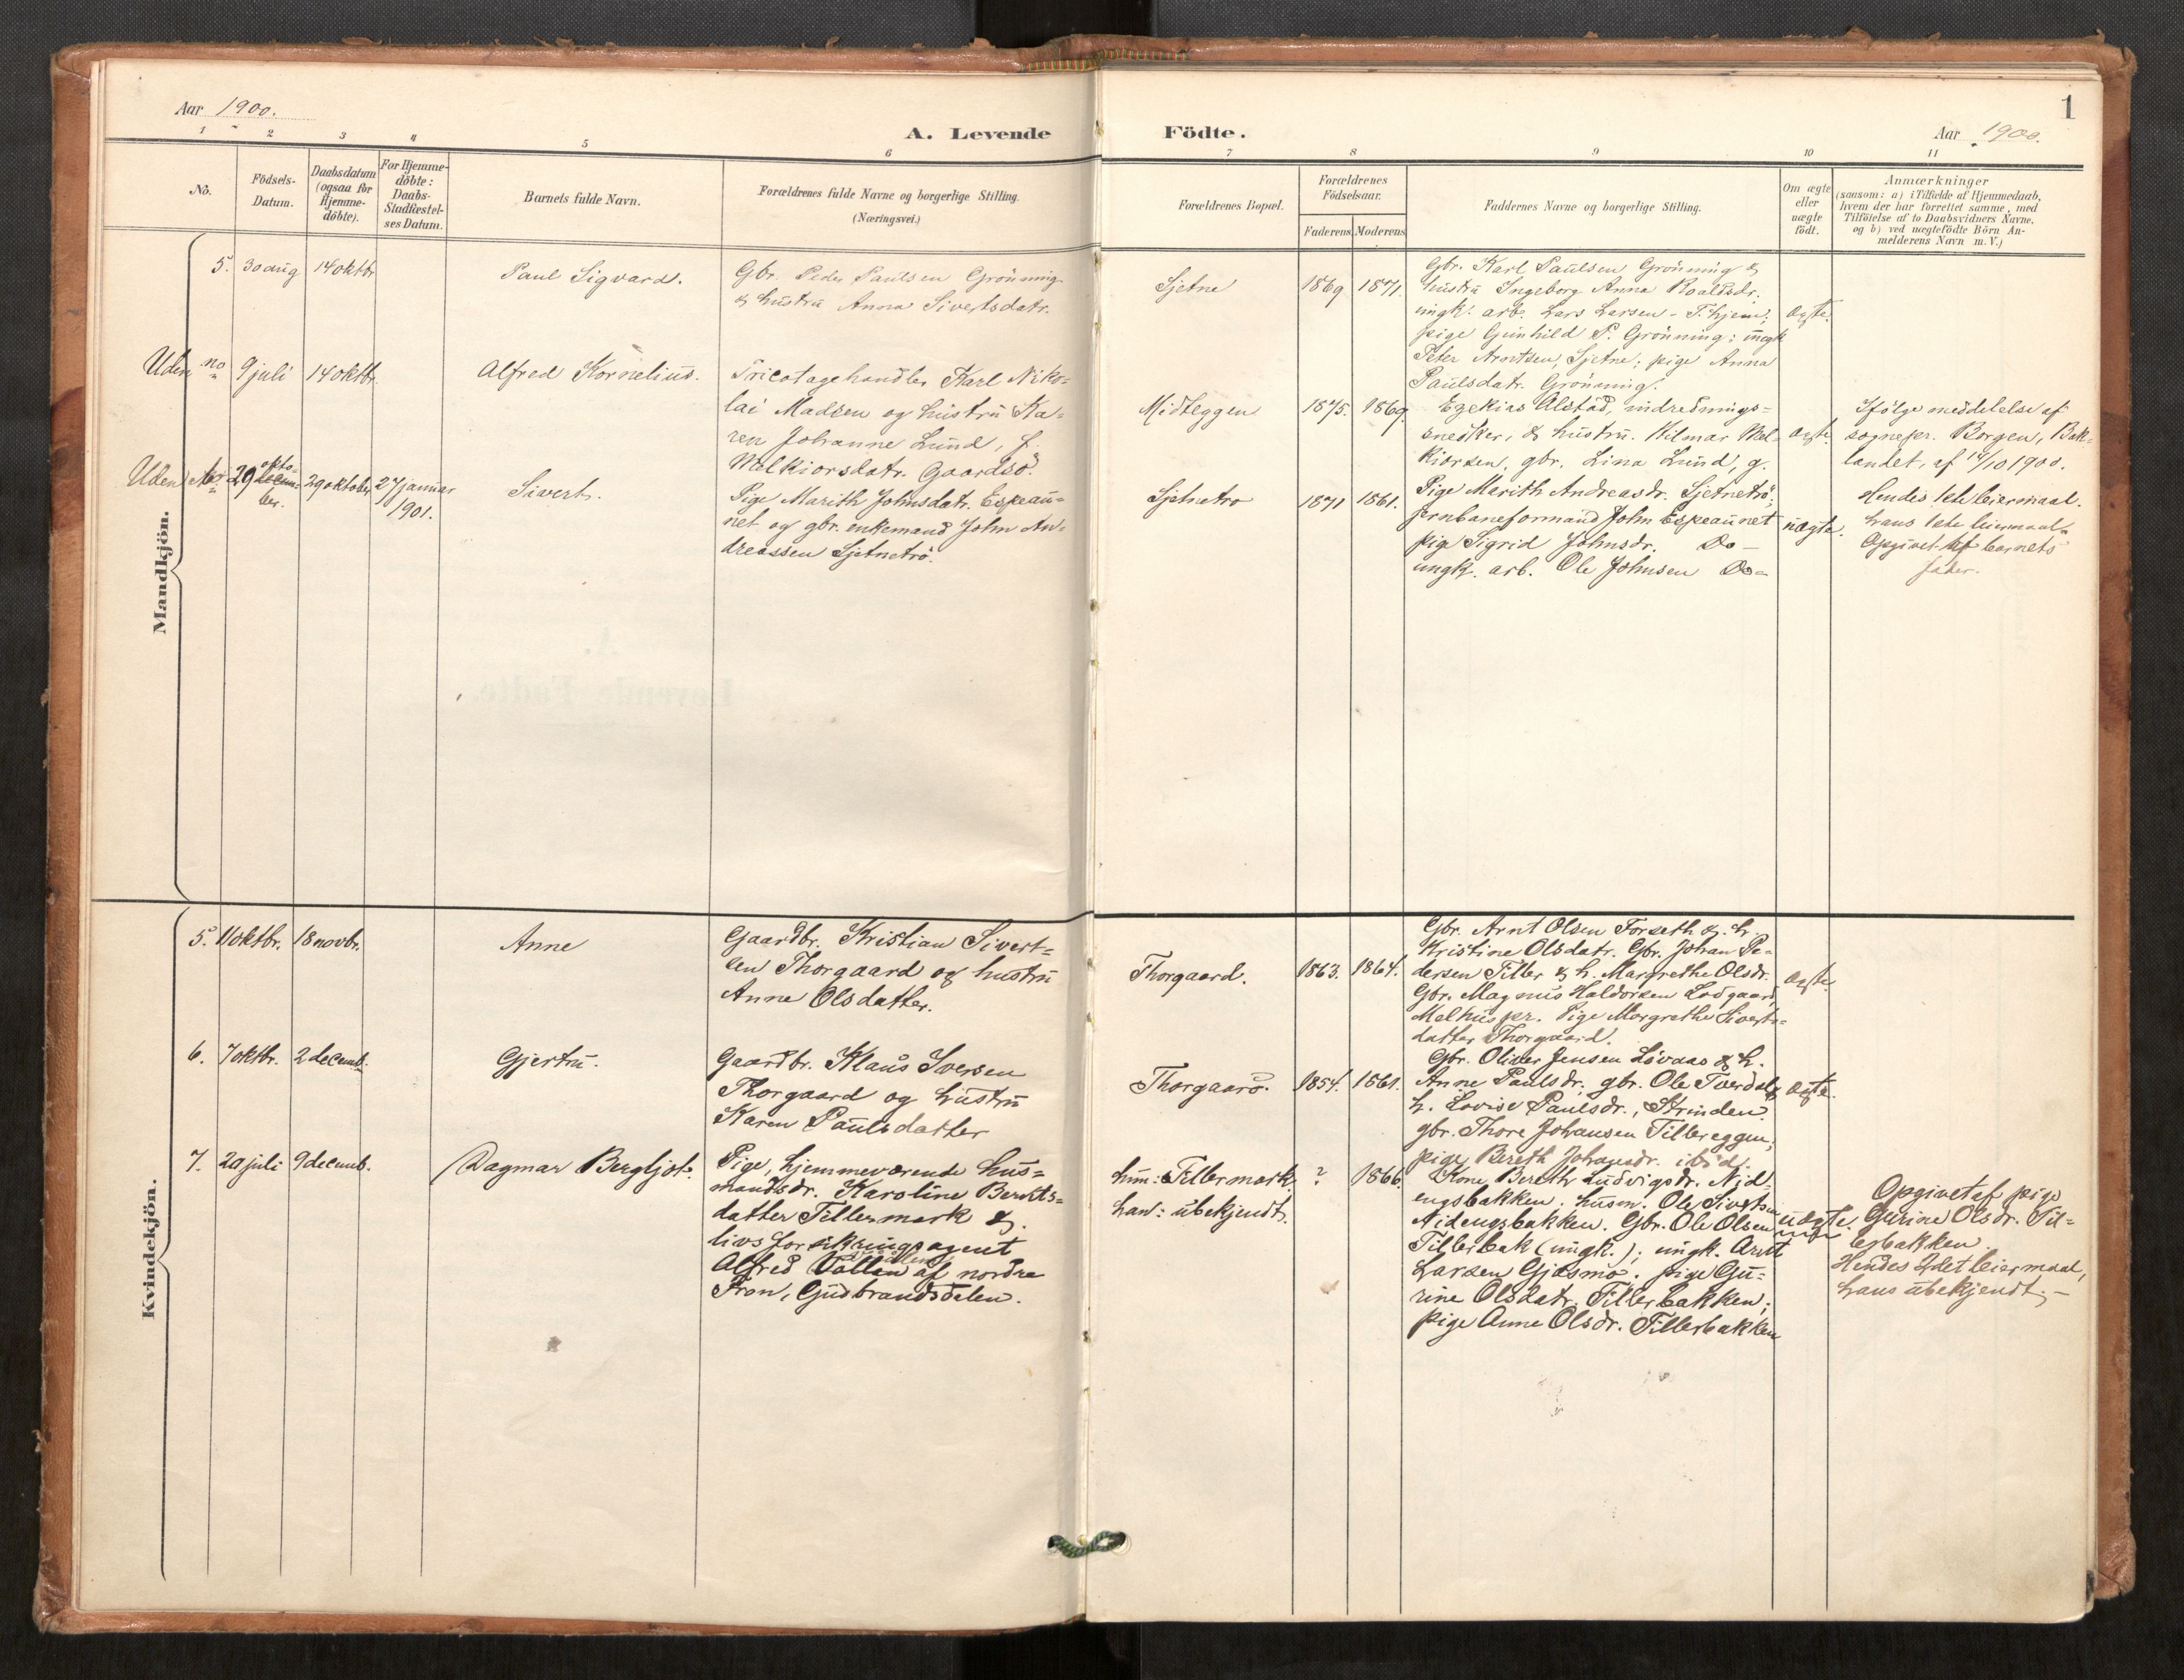 Aar 1900.
A. Levende Födte.
Aar 1900.
1
1 2 3 4 5 6 7 8 9 10 11
No.
Födsels-Datum.
Daabsdatum (ogsaa for Hjemme-döbte).
For Hjemme-döbte: Daabs-Stadfæstel-ses Datum.
Barnets fulde Navn.
Forældrenes fulde Navne og borgerlige Stilling.
(Næringsvei.)
Forældrenes Bopæl.
Forældrenes Födselsaar.
Faderens. Moderens.
Faddernes Navne og borgerlige Stilling.
Om ægte eller uægte födt.
Anmærkninger
(saasom: a) i Tilfælde af Hjemmedaab,
hvem der har forrettet samme, med
Tilföielse af to Daabsvidners Navne,
og b) ved uægtefödte Börn An-
melderens Navn m. V.)
Mandkjön.
5. 30 aug 14 oktbr
Paul Sigvard.
Gbr. Peder Paulsen Grönning
& hustru Anna Sivertsdatr.
Sjetne
1869 1871.
Gbr. Karl Paulsen Grönning &
hustru Ingeborg Anna Roaldsdr.
ungk. arb. Lars Larsen - T.hjem;
pige Gunhild P. Grönning; ungk
Peter Arntsen, Sjetne; pige Anna
Paulsdatr. Grönning.
ægte.
Uden no 9 juli 14 oktbr.
Alfred Kornelius.
Tricotagehandler Karl Niko-
lai Madsen og hustru Ka-
ren Johanne Lund, f.
Melkiorsdatr. Gaardsö.
Midteggen
1875. 1869.
Ezekias Alstad, indrednings-
snedker, & hustru. Hilmar Mel-
kiorsen, gbr. Lina Lund, g.
ægte.
Ifölge meddelelse af
sognepr. Borgen, Bak-
landet, af 14/10 1900.
Uden No 29 okto-
ber. 29 oktober 27 januar
1901.
Sivert.
Pige Marith Johnsdatr. Espeau-
net og gbr. enkemand John An-
dreassen Sjetnetrö.
Sjetnetro
1871 1861.
Pige Marith Andreasdr. Sjetnetrö;
jernbaneformand John Espeaunet
pige Sigrid Johnsdr. Do -
ungk. arb. Ole Johnsen Do -
uægte.
Hendes 1ste leiermaal.
hans 1ste leiermaal
Opgivet af barnets
fader.
Kvindekjön.
5. 11 oktbr. 18 novbr.
Anne
Gaardbr. Kristian Sivert-
sen Thorgaard og hustru
Anne Olsdatter.
Thorgaard.
1863. 1864.
Gbr. Arnt Olsen Forseth & h.
Kristine Olsdatr. Gbr. Johan Pe-
dersen Tiller & h. Margrethe Olsdr.
Gbr. Magnus Haldorsen Lodgaard,
Melhus pr. Pige Margrethe Siverts-
datter Thorgaard.
ægte
6. 7 oktbr. 2 decemb.
Gjertru.
Gaardbr. Klaus Iversen
Thorgaard og hustru
Karen Paulsdatter
Thorgaard.
1854. 1861.
Gbr. Oliver Jensen Lövaas & h.
Anne Paulsdr. gbr. Ole Tverdal &
h. Lovise Paulsdr., Strinden
gbr. Thore Johansen Tillereggen;
pige Bereth Johansdr. ibid.
ægte.
7. 20 juli 9 decemb.
Dagmar Bergljot.
Pige, hjemmeværende hus-
mandsdr. Karoline Berntts-
datter Tillermark &
livsforsikringsagent
Alfred af nordre
Fron, Gudbrandsdalen.
hun: Tillermark
han: ubekjendt.
? 1866.
Kone Berethe Ludvigsdr. Nid-
engsbakken, husm. Ole Sivertsen
Nidengsbakken. Gbr. Ole Olsen
Tillerbak (ungk.); ungk. Arnt
Larsen Gjösmo. pige Gu-
rine Olsdatr. Tillerbakken;
pige Anne Olsdr. Tillerbakken
uægte.
Opgivet af pige
Gurine Olsdr. Til-
lerbakken.
Hendes 2det leiermaal,
hans ubekjendt. -